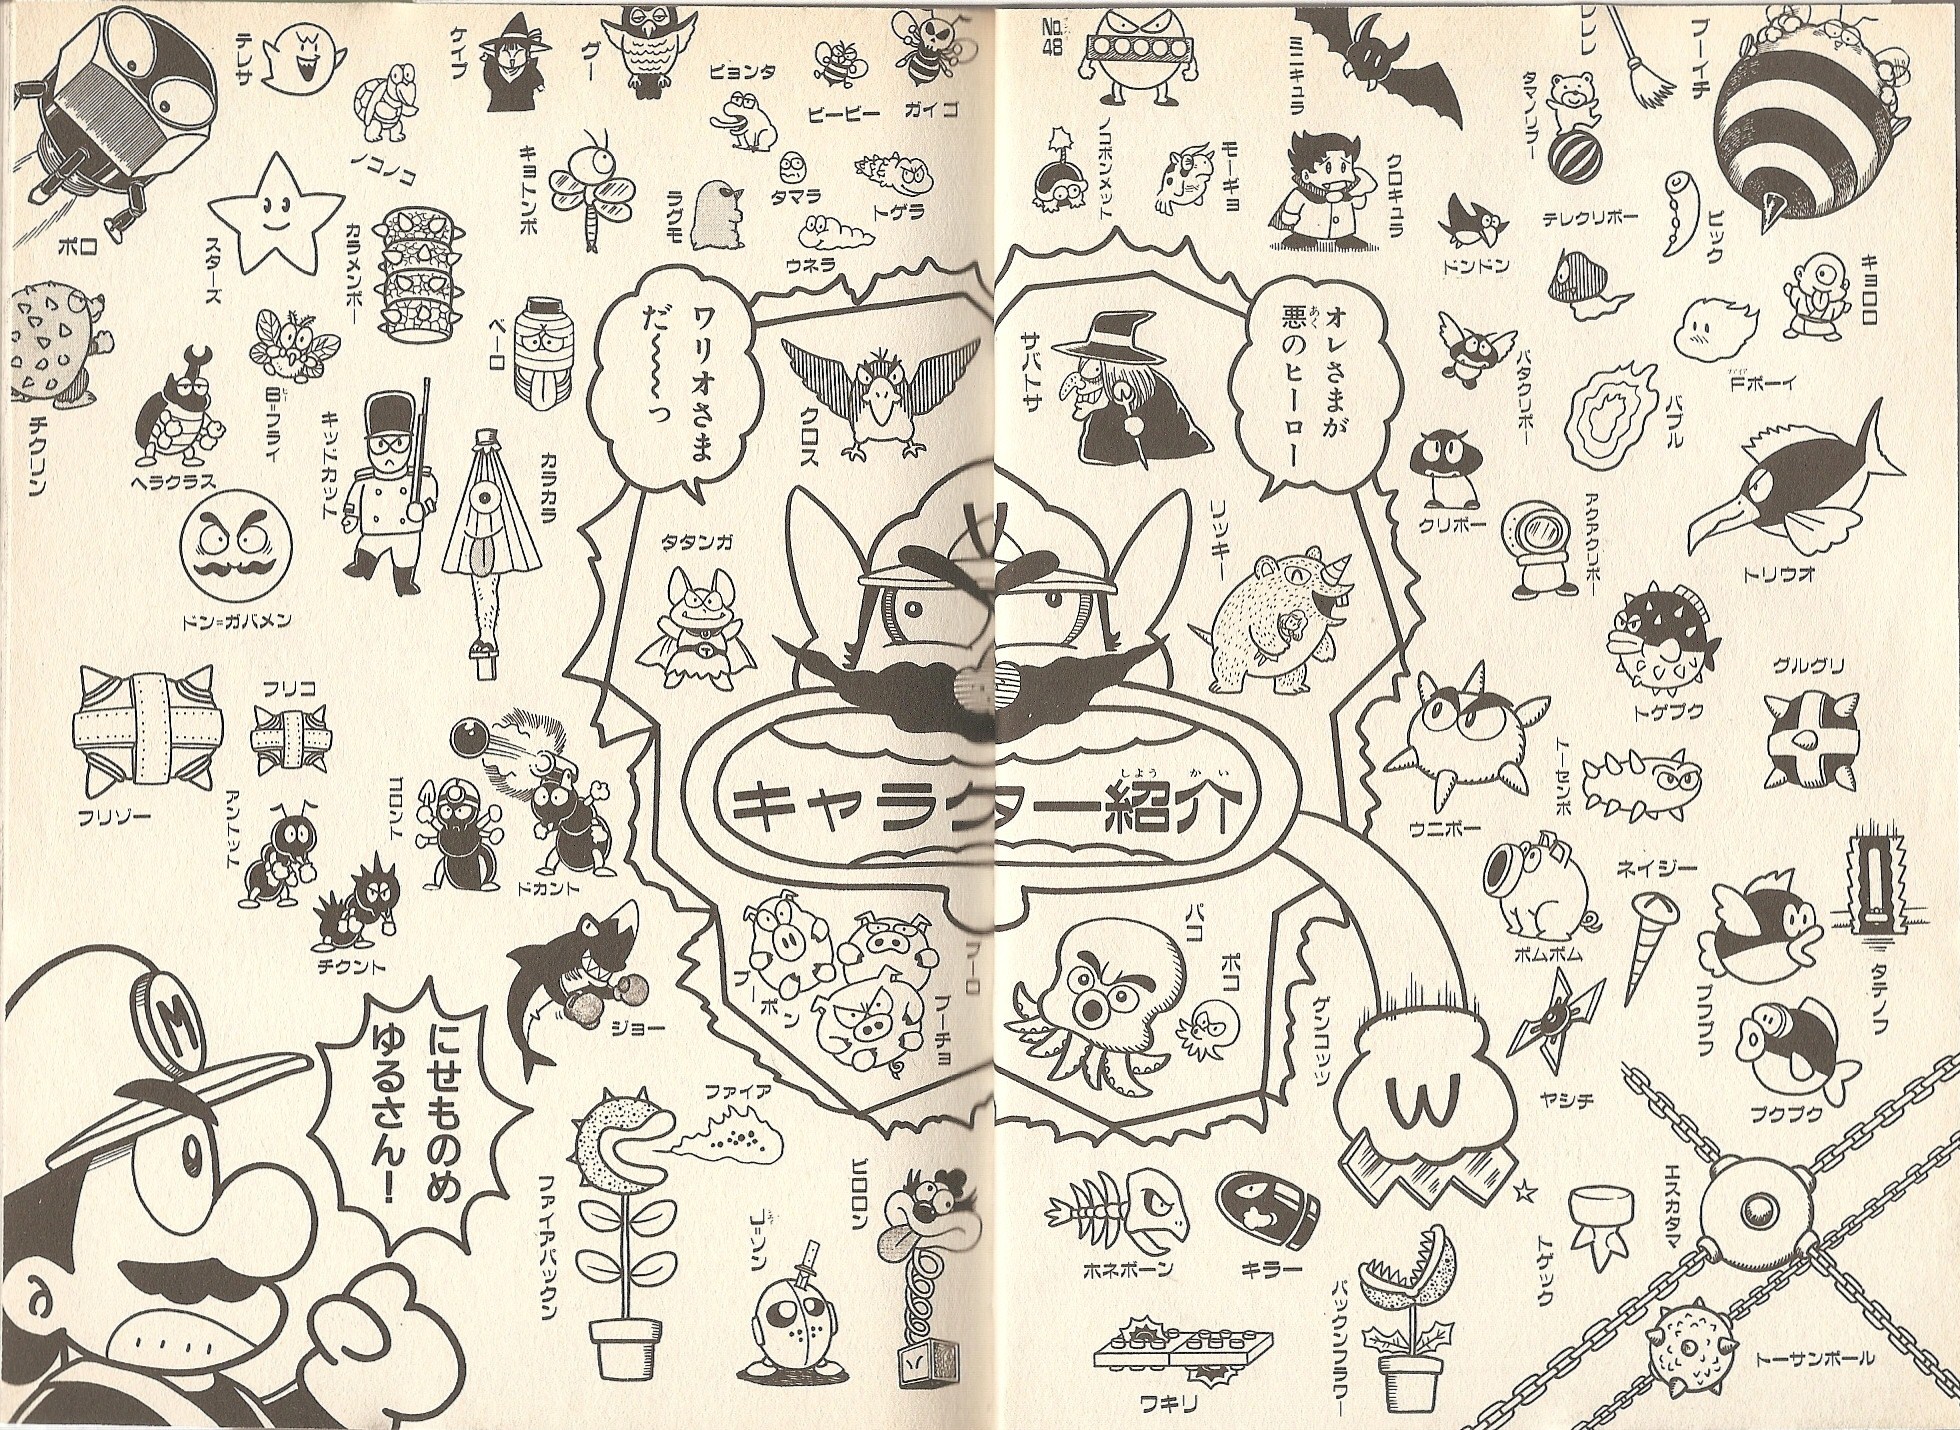 No.
48
ミニキュラ
ブーイチ
タマノリブー
ノコボンメット
モーギョ
クロキュラ
ドンドン
テレクリボー
ビック
キョロロ
オレさまが
悪のヒーロー
あく
サバトサ
パタクリボー
Fボーイ
ファイア
バブル
クリボー
アクアクリボー
トリウオ
コッキー
トゲプク
グルグリ
ウニボー
トーセンボ
キャラクター紹介
しょう
かい
ネイジー
ポムポム
タテノフ
パコ
ポコ
ゲンコッツ
W
ヤシチ
プクプク
エスカタマ
トゲック
ホネボーン
キラー
パックンフラワー
ワキリ
トーサンボール
テレサ
ケイプ
グー
ピョンタ
ビービー
ガイコ
ノコノコ
キョトンボ
ラグモ
タマラ
トゲラ
ウネラ
ポロ
スターズ
カラメンボー
ワリオさま
だ〜〜〜〜っ
クロス
ベーロ
B=フライ
ビー
チクリン
ヘラクラス
キッドカット
カラカラ
タタンガ
ドン=ガバメン
フリコ
フリゾー
アントット
コロント
ドカント
チクント
ジョー
ブーポン
ブーロ
ブーチョ
M
にせものめ
ゆるさん！
ファイア
ファイアパックン
J=ソン
ビロロン